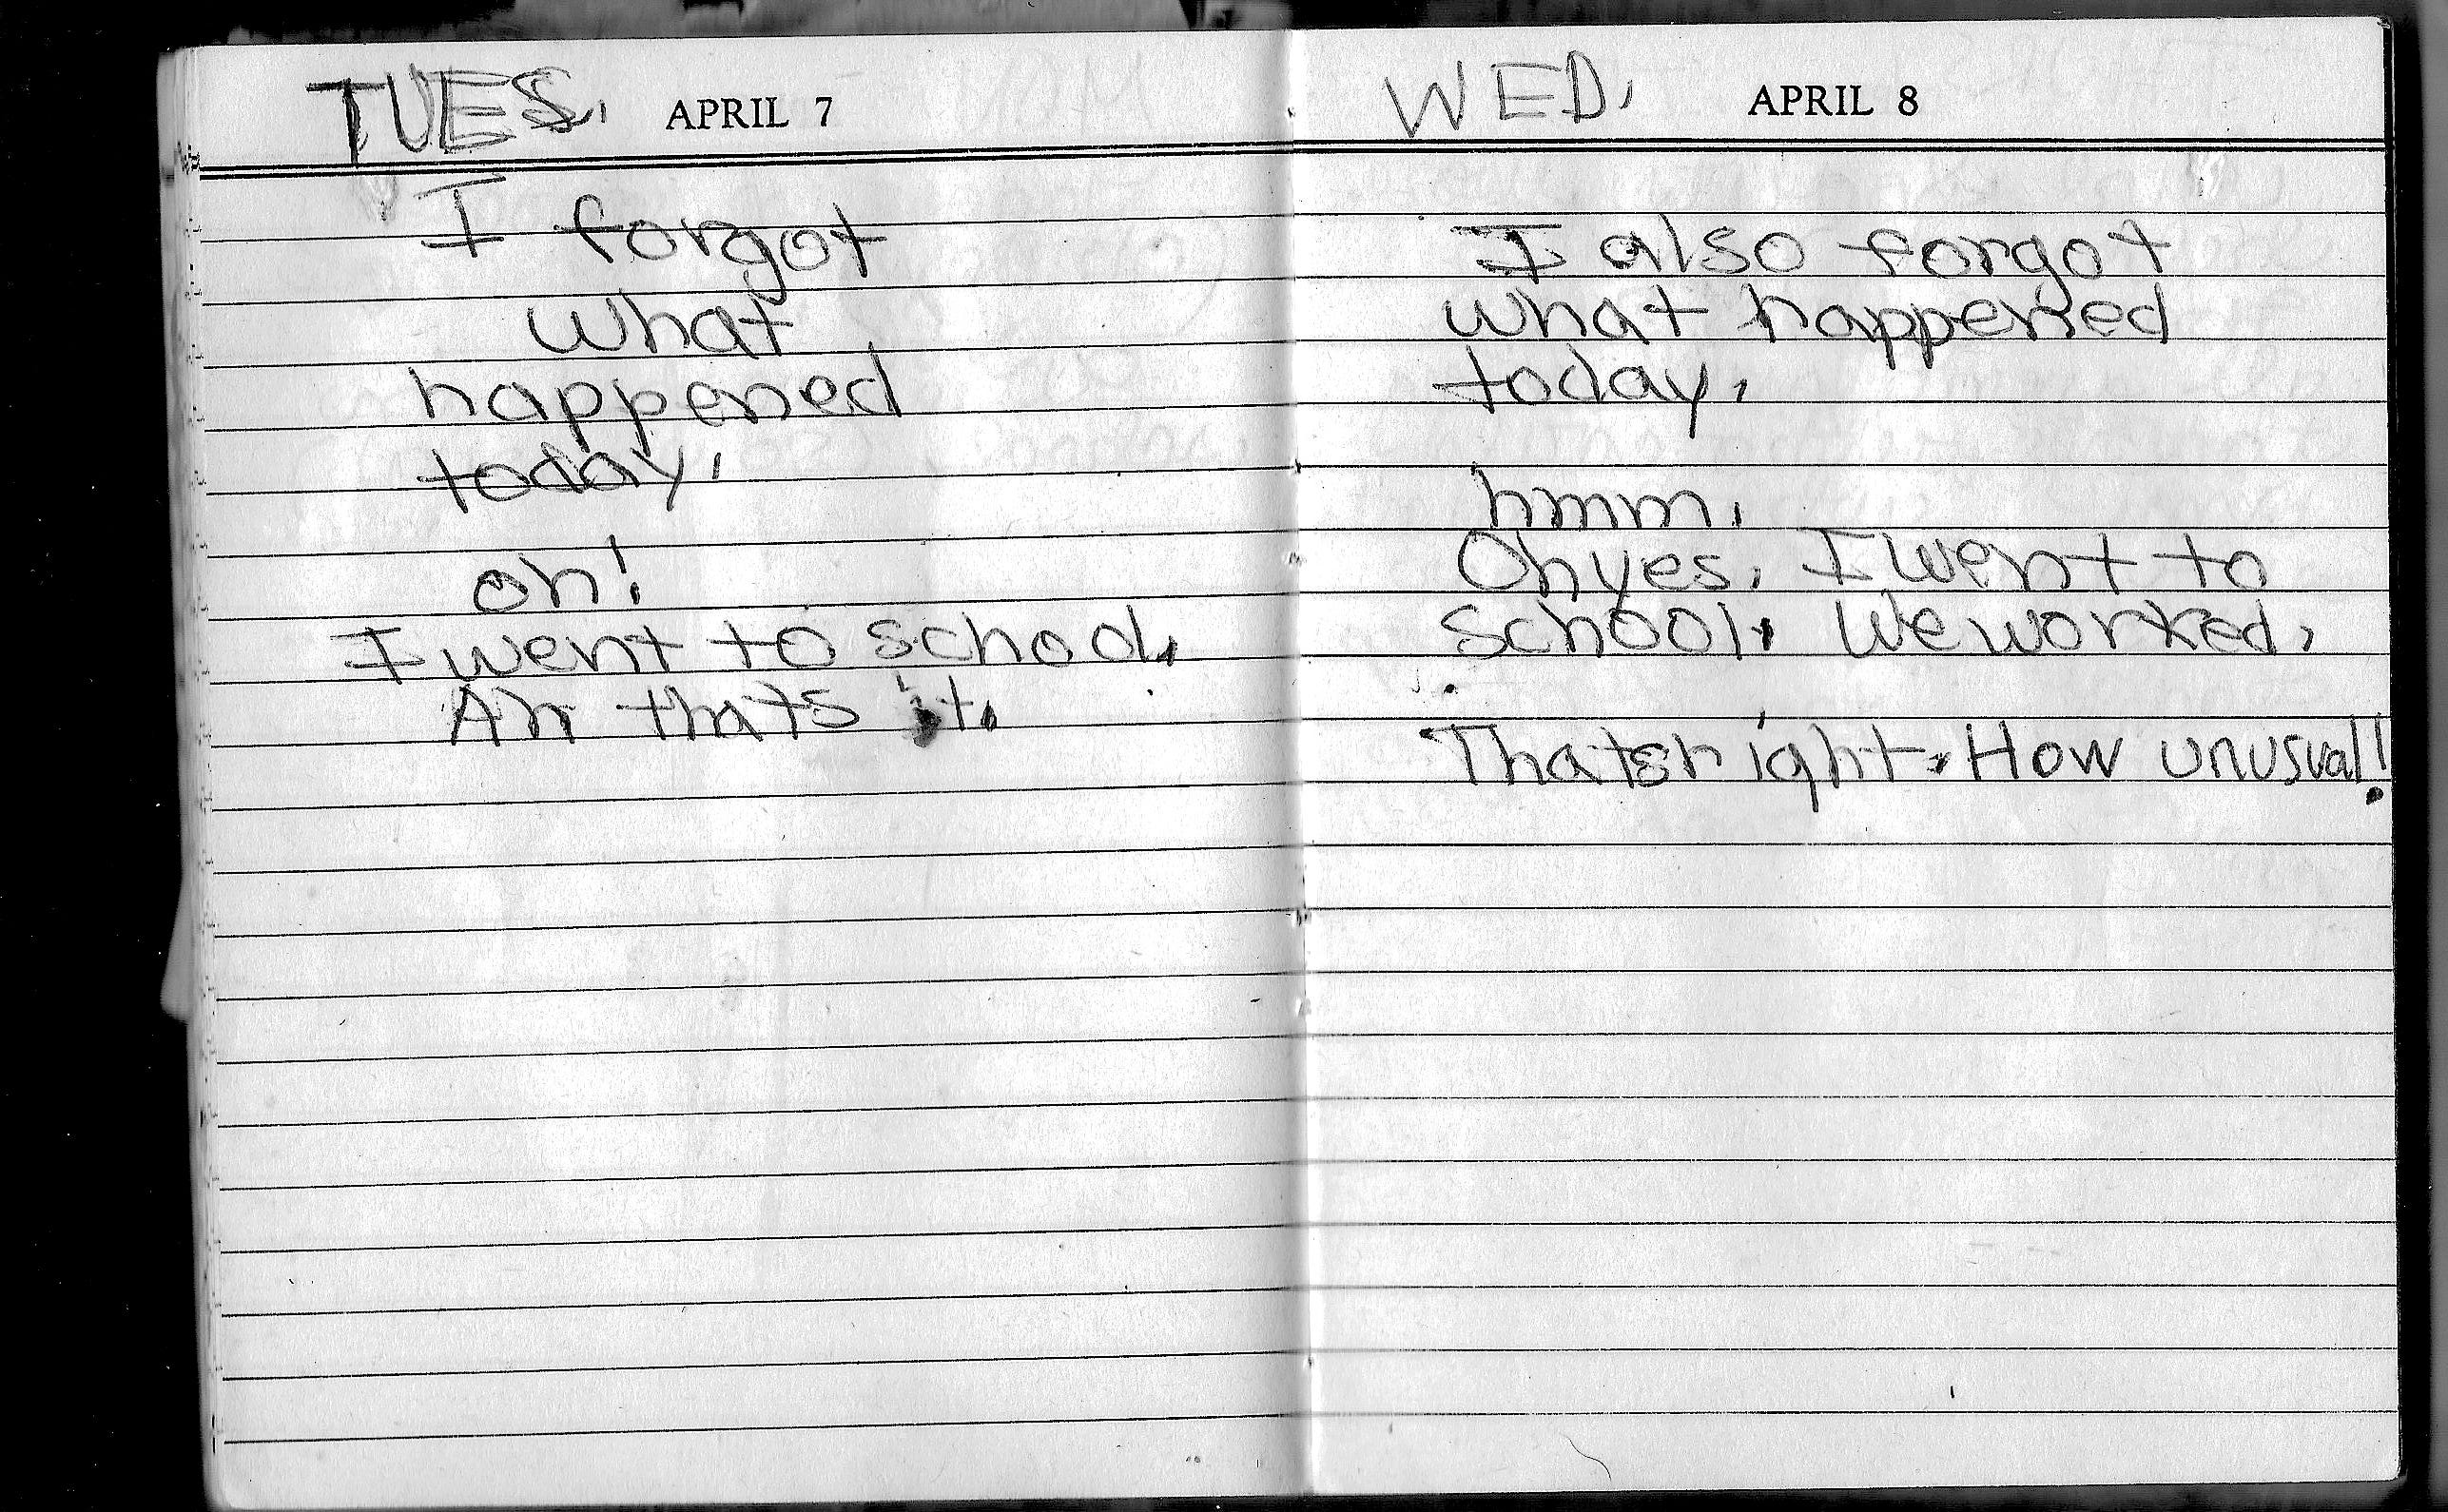 TUES. APRIL 7
I forgot
what
happened
today.
oh!
I went to school.
Ah thats it.
WED. APRIL 8
I also forgot
what happened
today.
hmm.
Oh yes. I went to
school. We worked.
Thats right. How unusual!